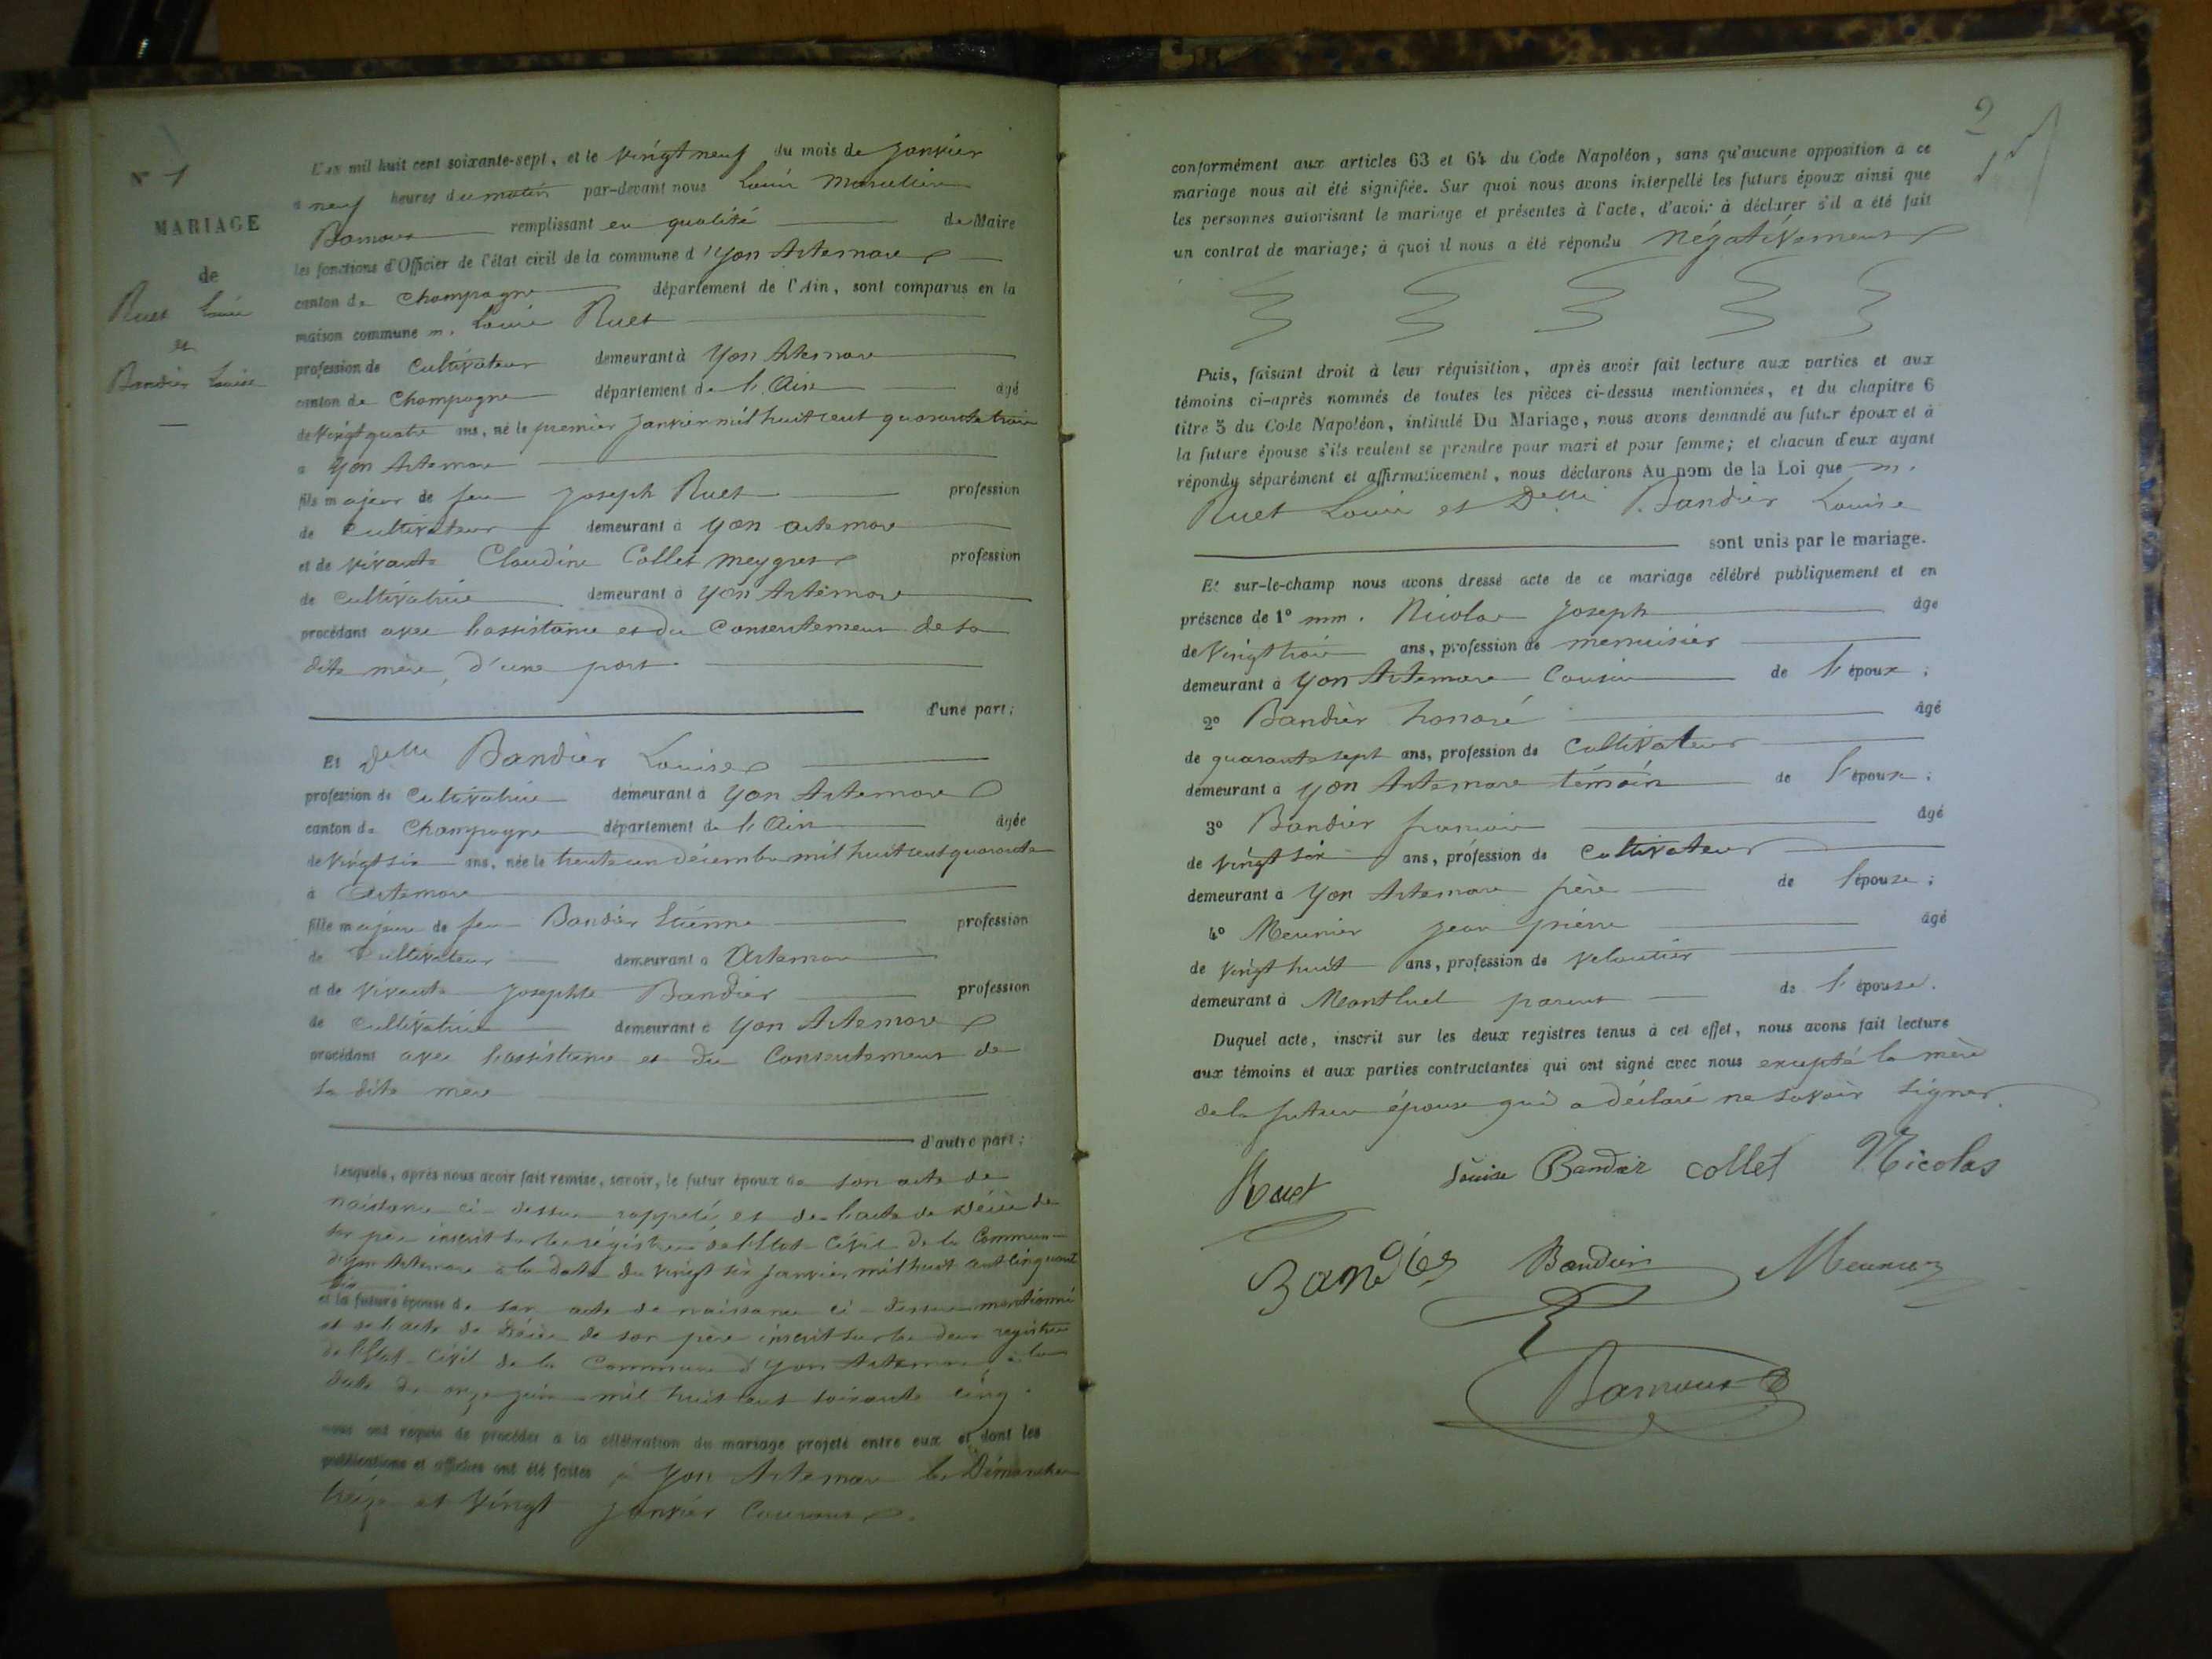 N° 1
MARIAGE
de
Ruet Louis
et
Bandier Louise
L'an mil huit cent soixante-sept, et le vingt neuf du mois de janvier
à neuf heures du matin par-devant nous Louis Marcellin
Bamoux remplissant en qualité de Maire
les fonctions d'Officier de l'état civil de la commune d'Yon Artemare
canton de Champagne département de l'Ain, sont comparus en la
maison commune m. Louis Ruet
profession de Cultivateur demeurant à Yon Artemare
canton de Champagne département de l'Ain âgé
de vingt quatre ans, né le premier janvier mil huit cent quarante trois
à Yon Artemare
fils majeur de feu Joseph Ruet profession
de Cultivateur demeurant à Yon Artemare
et de vivante Claudine Collet Meygret profession
de Cultivatrice demeurant à Yon Artemare
procédant avec l'assistance et du Consentement de sa
dite mère, d'une part
d'une part;
Et Delle Bandier Louise
profession de Cultivatrice demeurant à Yon Artemare
canton de Champagne département de l'Ain âgée
de vingt six ans, née le trente un décembre mil huit cent quarante
à Artemare
fille majeure de feu Bandier Etienne profession
de Cultivateur demeurant à Artemare
et de vivante Josephte Bandier profession
de Cultivatrice demeurant à Yon Artemare
procédant avec l'assistance et du Consentement de
sa dite mère
d'autre part;
Lesquels, après nous avoir fait remise, savoir, le futur époux de son acte de
naissance ci-dessus rappelé, et de l'acte de décès de
son père inscrit sur les régistres de l'Etat-Civil de la Commune
d'Yon Artemare à la date du vingt six janvier mil huit cent cinquante
six
et la future épouse de son acte de naissance ci-dessus mentionné
et de l'acte de décès de son père inscrit sur les deux registres
de l'Etat-Civil de la Commune d'Yon Artemare à la
date du onze juin mil huit cent soixante cinq.
nous ont requis de procéder à la célébration du mariage projeté entre eux et dont les
publications et affiches ont été faites à Yon Artemare les Dimanches
treize et vingt janvier Courant.
2
conformément aux articles 63 et 64 du Code Napoléon, sans qu'aucune opposition à ce
mariage nous ait été signifiée. Sur quoi nous avons interpellé les futurs époux ainsi que
les personnes autorisant le mariage et présentes à l'acte, d'avoir à déclarer s'il a été fait
un contrat de mariage; à quoi il nous a été répondu négativement
Puis, faisant droit à leur réquisition, après avoir fait lecture aux parties et aux
témoins ci-après nommés de toutes les pièces ci-dessus mentionnées, et du chapitre 6
titre 5 du Code Napoléon, intitulé Du Mariage, nous avons demandé au futur époux et à
la future épouse s'ils veulent se prendre pour mari et pour femme; et chacun d'eux ayant
répondu séparément et affirmativement, nous déclarons Au nom de la Loi que m.
Ruet Louis et Delle Bandier Louise
sont unis par le mariage.
Et sur-le-champ nous avons dressé acte de ce mariage célébré publiquement et en
présence de 1° mm. Nicolas Joseph âgé
de vingt trois ans, profession de menuisier
demeurant à Yon Artemare Cousin de l'époux;
2° Bandier honoré âgé
de quarante sept ans, profession de Cultivateur
demeurant à Yon Artemare témoin de l'épouse;
3° Bandier françois âgé
de vingt six ans, profession de Cultivateur
demeurant à Yon Artemare frère de l'épouse;
4° Meunier jean pierre âgé
de vingt huit ans, profession de veloutier
demeurant à Montluel parent de l'épouse.
Duquel acte, inscrit sur les deux registres tenus à cet effet, nous avons fait lecture
aux témoins et aux parties contractantes qui ont signé avec nous excepté la mère
de la future épouse qui a déclaré ne savoir signer.
Ruet Louise Bandier collet Nicolas
Bandier Bandier Meunier
Bamoux